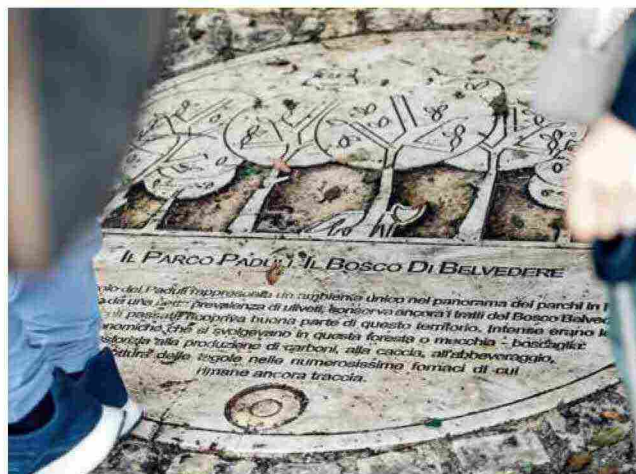 IL PARCO PADULI IL BOSCO DI BELVEDERE
dei Paduli rappresenta un ambiente unico nel panorama dei parchi in
da una prevalenza di uliveti, conserva ancora i tratti del Bosco
passato ricopriva buona parte di questo territorio. Intense erano
che si svolgevano in questa foresta o macchia - boscaglia:
alla produzione di carboni, alla caccia, all'abbeveraggio,
delle tegole nelle numerosissime fornaci di cui
rimane ancora traccia.